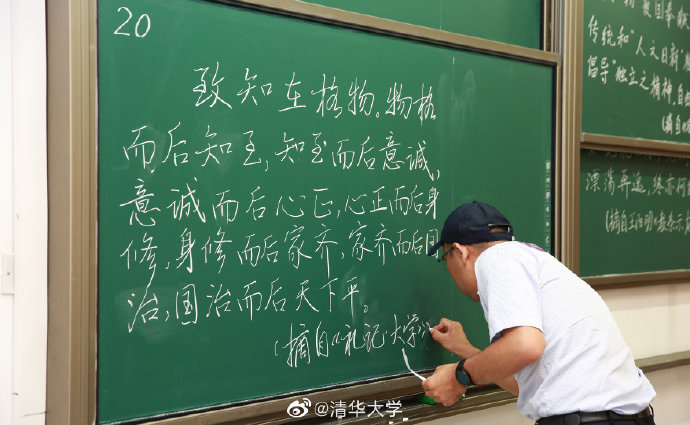 20
致知在格物。物格
而后知至,知至而后意诚,
意诚而后心正,心正而后身
修,身修而后家齐,家齐而后国
治,国治而后天下平。
(摘自《礼记·大学》)
传统和"人文日新"
倡导"独立之精神,自
(摘自
漂荡奔逸,终亦何
(摘自王阳明《教条示
@清华大学